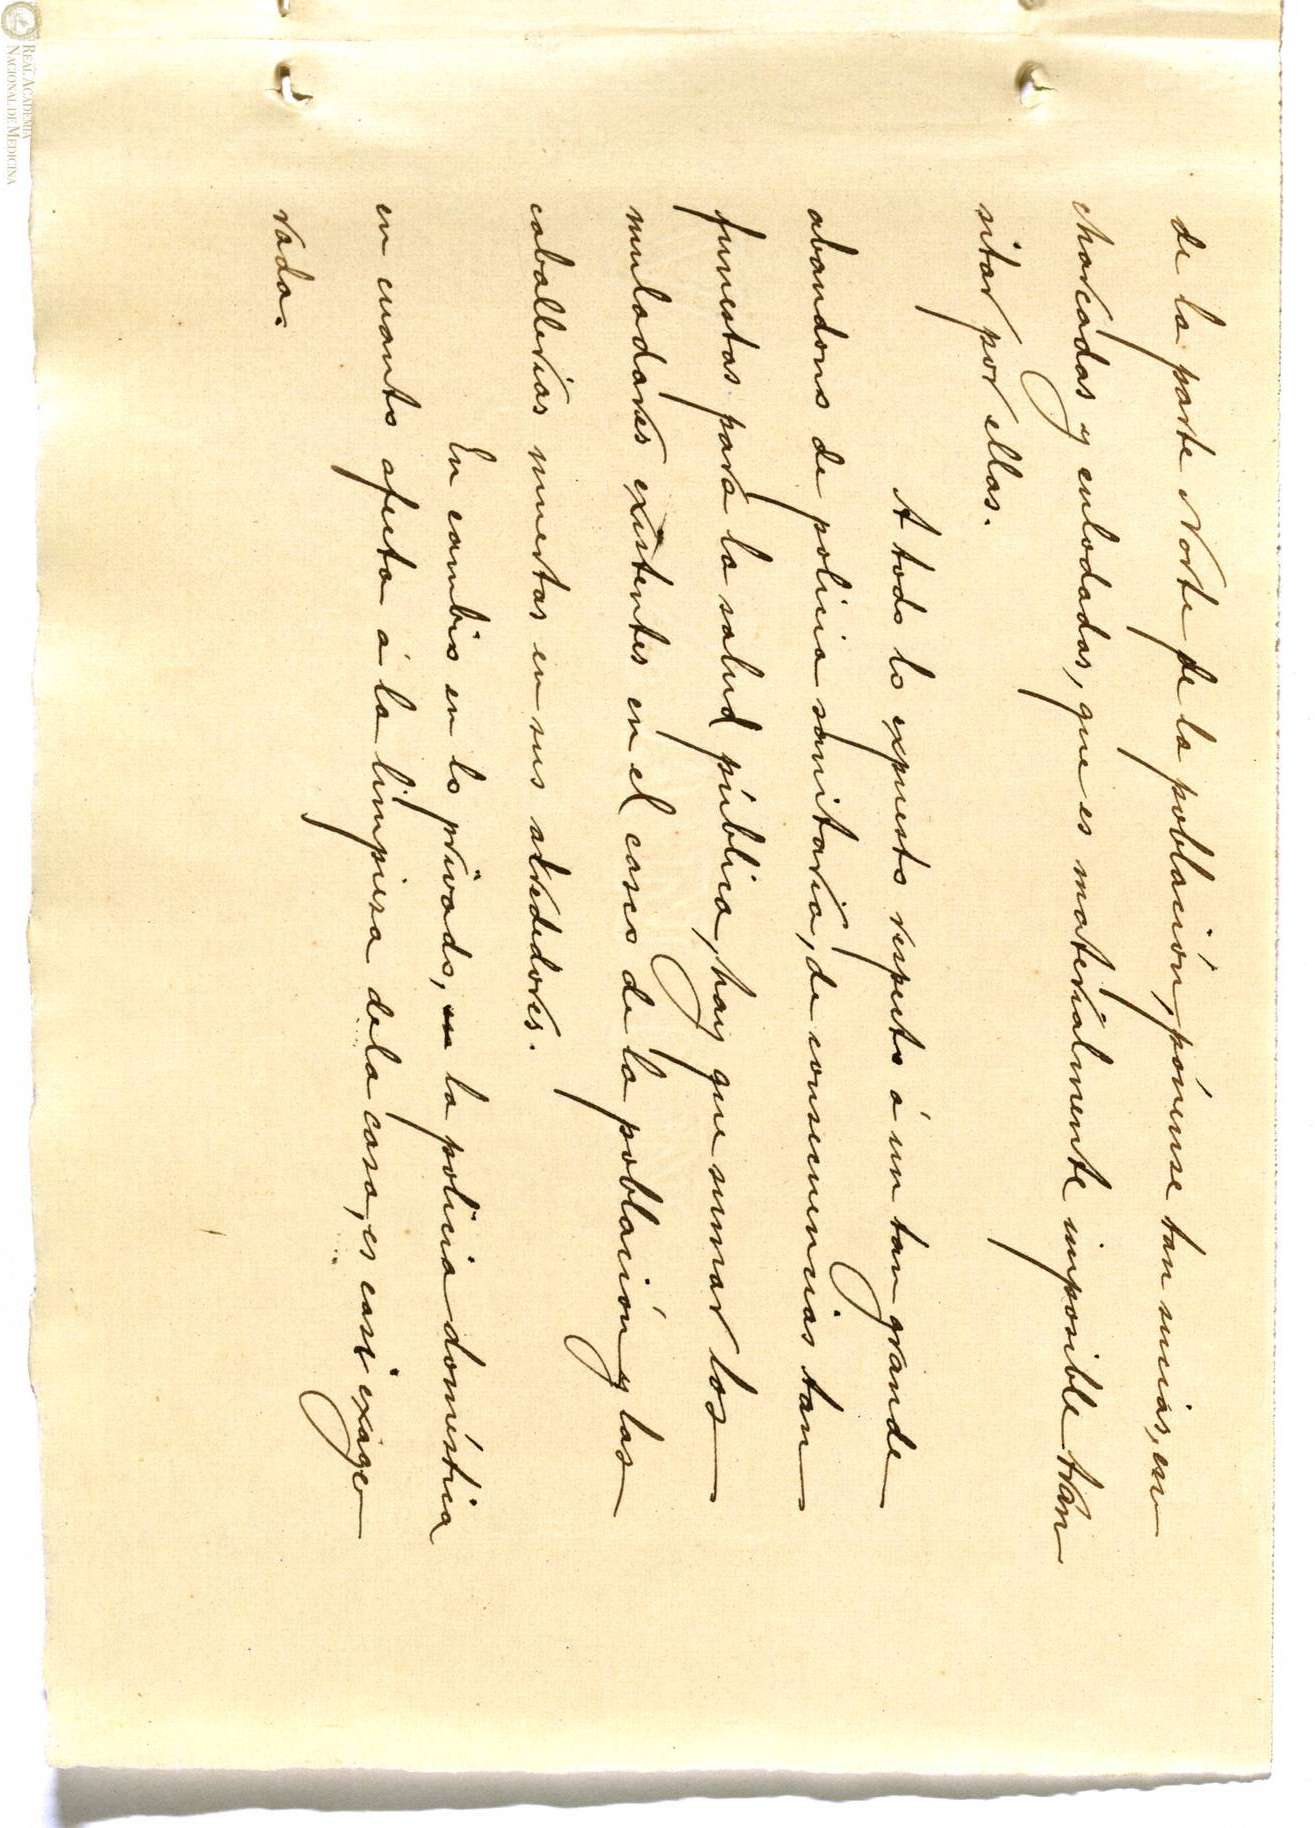 de la parte Norte de la población, pónense tan sucias, en
charcadas y enlodadas, que es materialmente imposible tran
sitar por ellas.
A todo lo expuesto respecto á un tan grande
abandono de policia sanitaria, de consecuencias tan
funestas para la salud pública, hay que sumar los
muladares existentes en el casco de la población y las
caballerias muertas en sus alrededores.
En cambio en lo privado, en la policia doméstica
en cuanto afecta á la limpieza de la casa, es casi exage
rada.
REAL ACADEMIA
NACIONAL DE MEDICINA